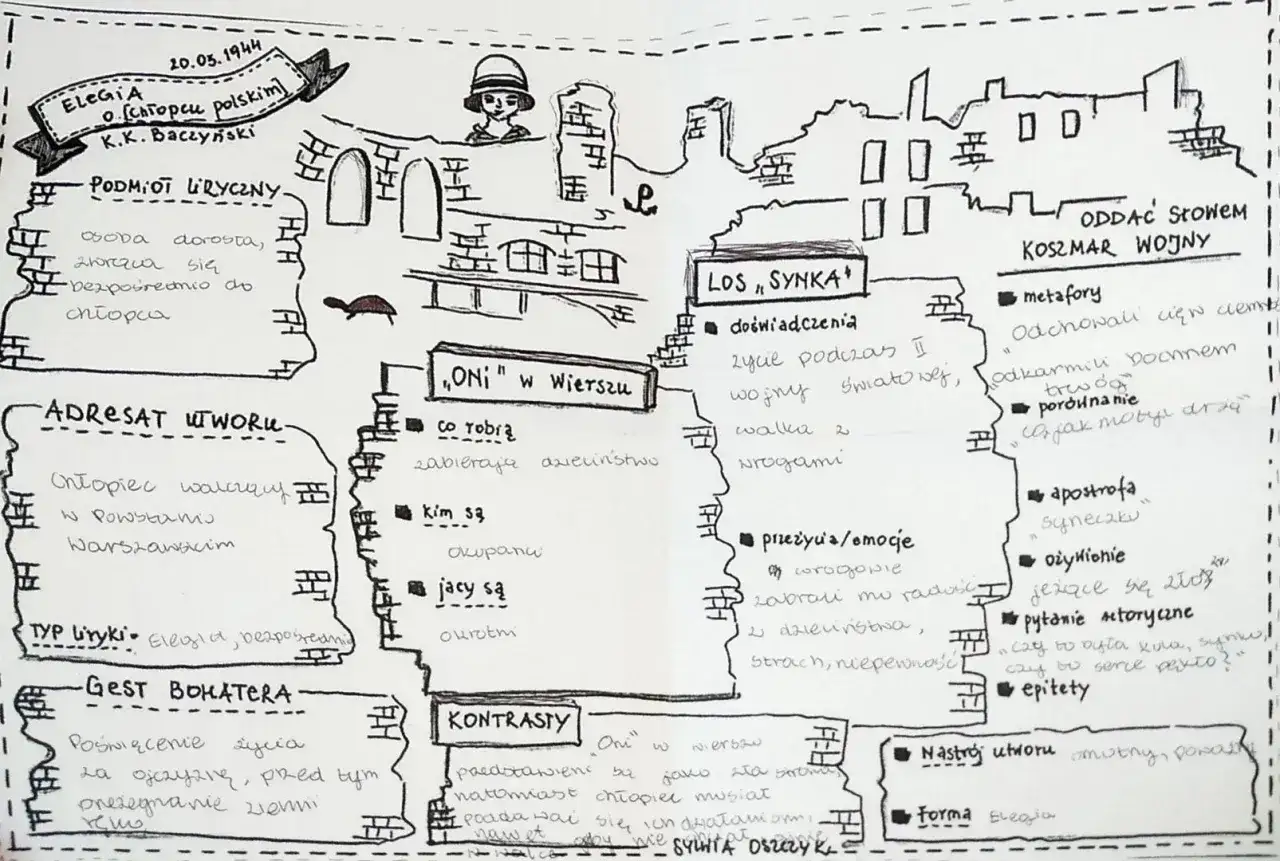 20.03.1944
ELEGIA
O [CHŁOPCU POLSKIM]
K.K. Baczyński
PODMIOT LIRYCZNY
osoba dorosła,
zwraca się
bezpośrednio do
chłopca
ADRESAT UTWORU
chłopiec walczący
w Powstaniu
Warszawskim
TYP LIRYKI- Elegia, bezpośrednia
GEST BOHATERA
Poświęcenie życia
za ojczyznę, przed tym
przeżegnanie ziemi
ręką
„ONI" W WIERSZU
co robią
zabierają dzieciństwo
kim są
okupanci
jacy są
okrutni
LOS „SYNKA"
doświadczenia
życie podczas II
wojny światowej,
walka z
wrogami
przeżycia/emocje
wrogowie
zabrali mu radość
z dzieciństwa,
strach, niepewność
KONTRASTY
„Oni" w wierszu
przedstawieni są jako zła strona,
natomiast chłopiec musiał
poddawać się ich działaniom,
nawet gdy nie
w walce
SYLWIA OSZCZYK
ODDAĆ SŁOWEM
KOSZMAR WOJNY
metafory
"Odchowali cię w
"odkarmili bochnem
trwóg"
porównanie
"co jak motyl drżą"
apostrofa
"syneczku"
ożywienie
jeżące się
pytanie retoryczne
„czy to była kula, synku,
czy to serce pękło?"
epitety
Nastrój utworu smutny, poważny
Forma Elegia